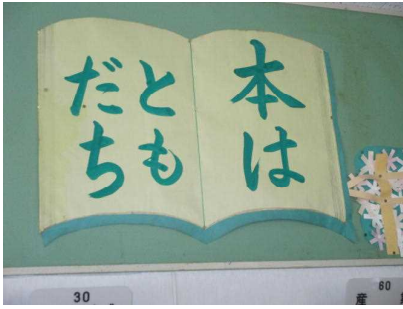 本は
とも
だち
30
60
産